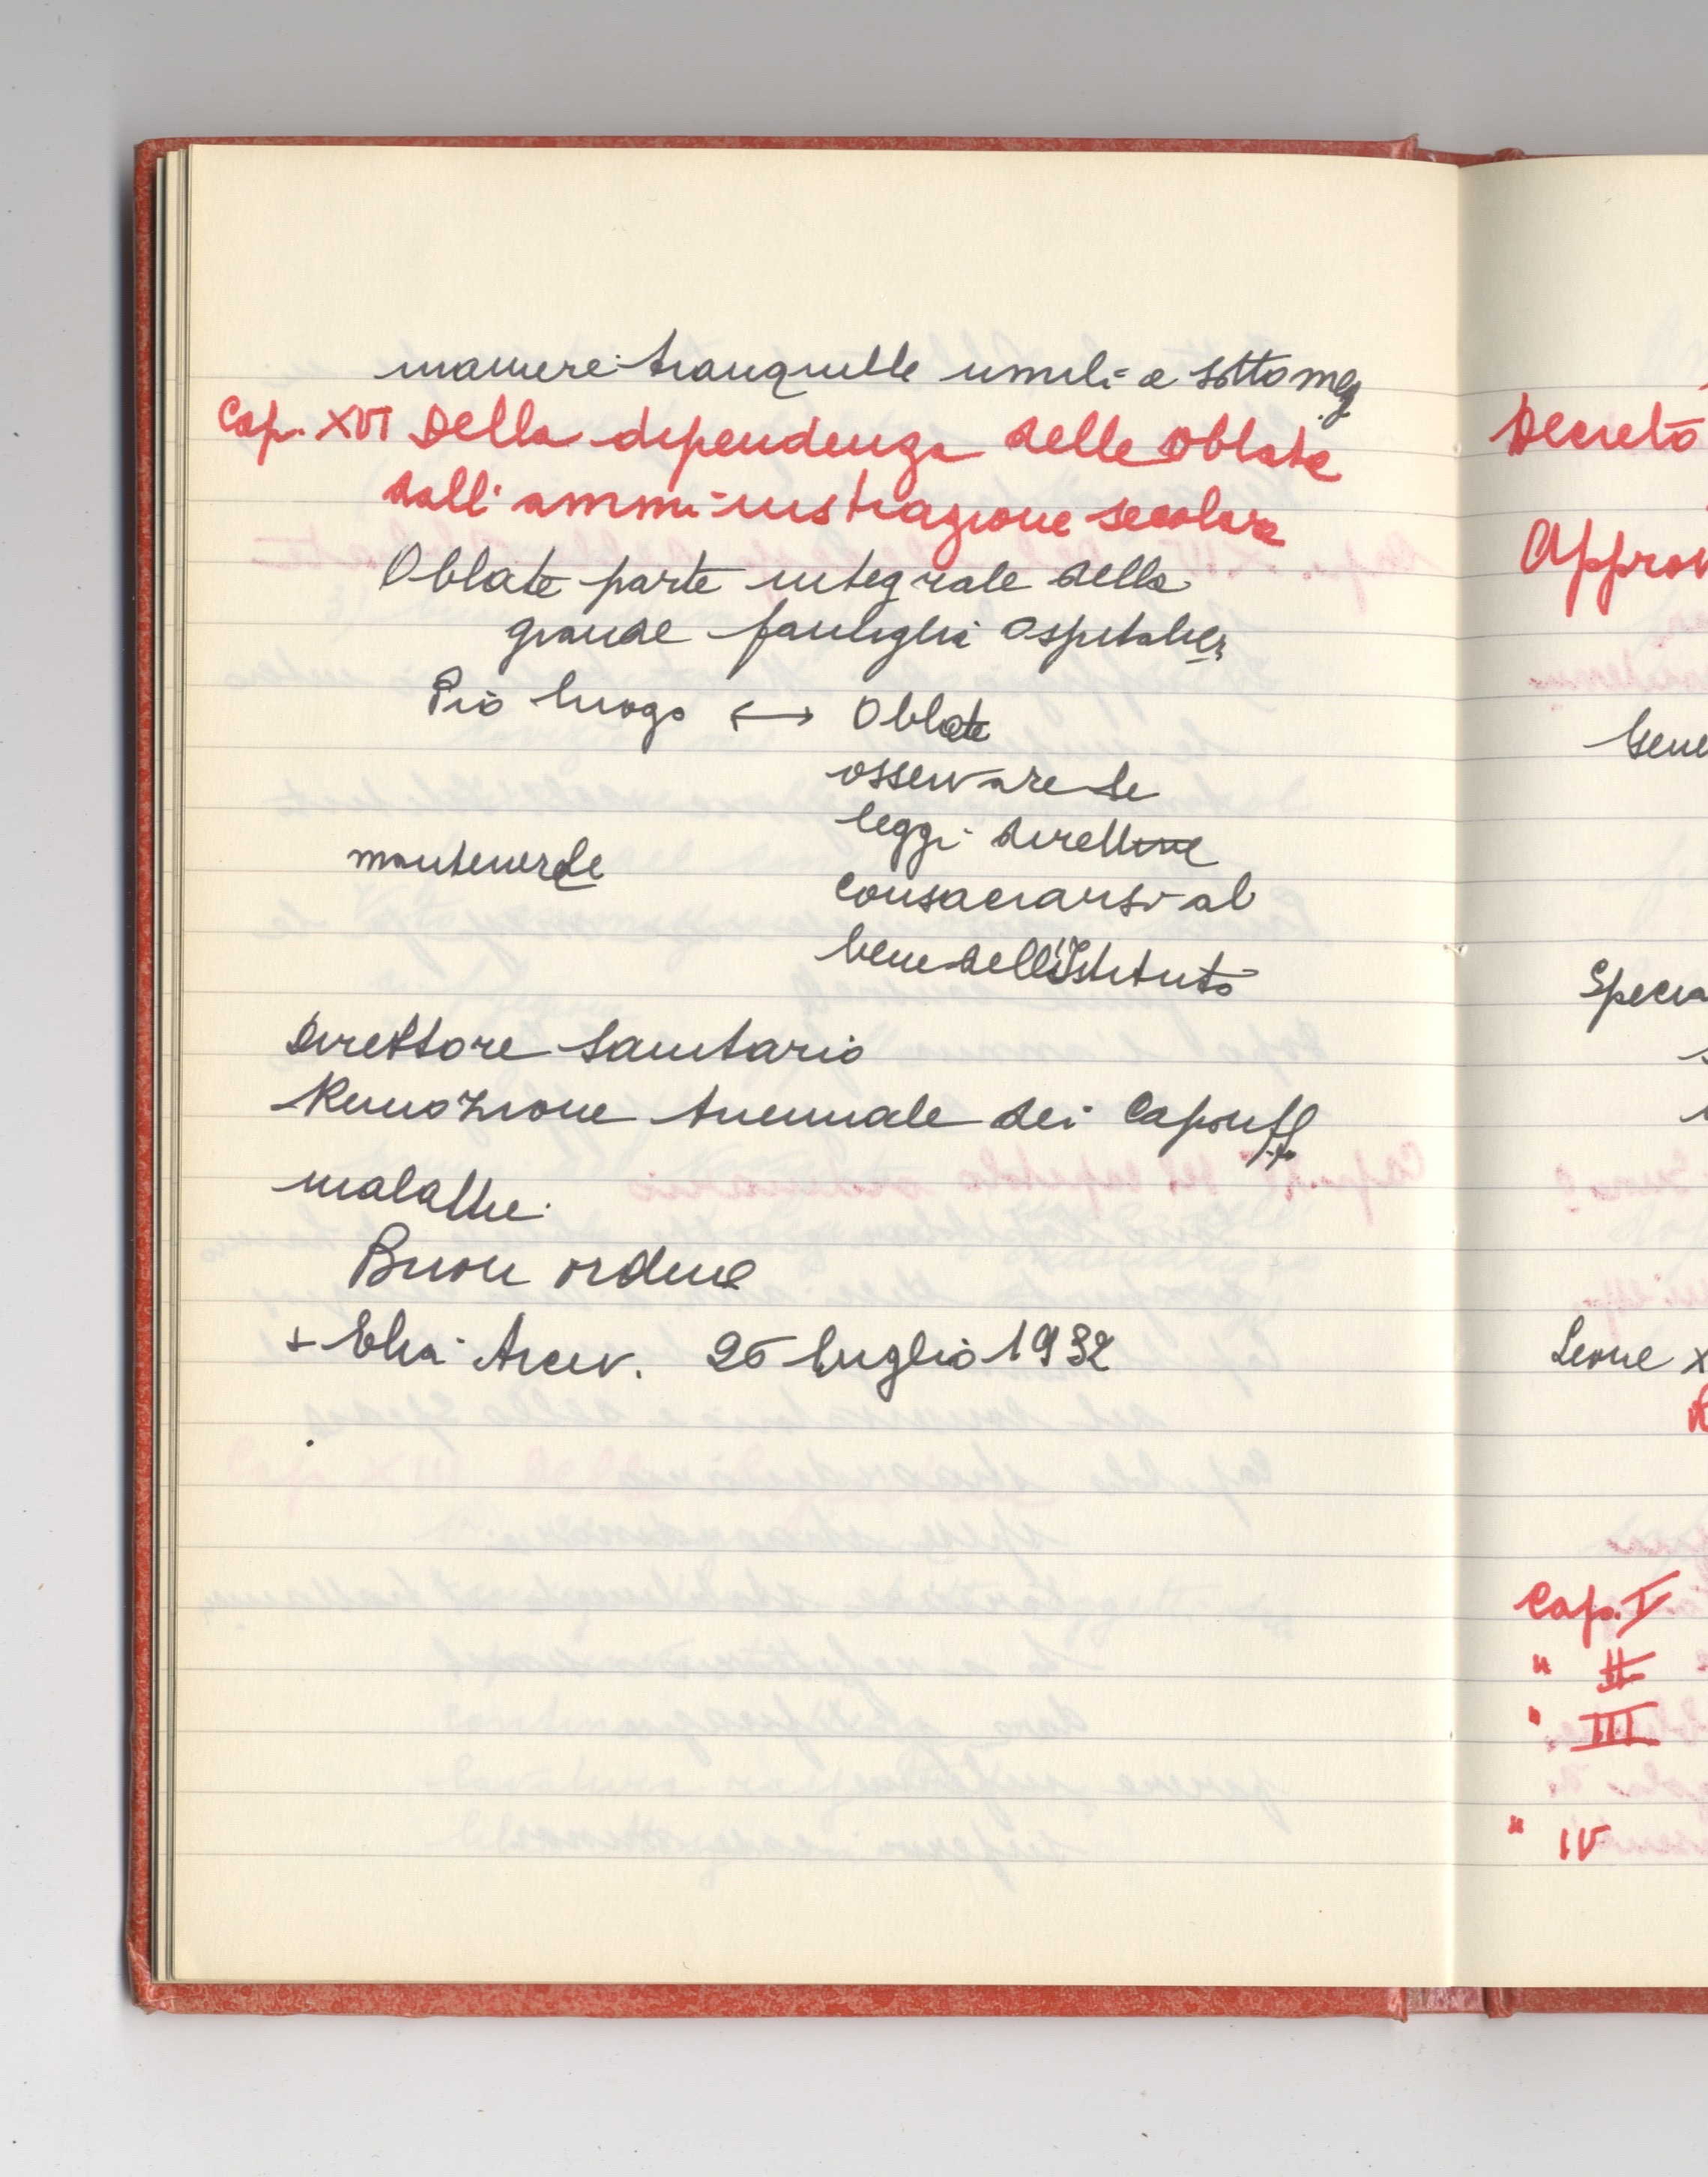 maniere tranquille umili e sottomes
Cap. XVI Della dipendenza delle Oblate
dall'amministrazione secolare
Oblate parte integrale della
grande famiglia Ospitalier
Pio luogo ↔ Oblate
osservare le
leggi direttive
mantenerle
consacrarsi al
bene dell'Istituto
Direttore Sanitario
Rimozione triennale dei Capouff
malattie
Buon ordine
+ Elia Arciv. 25 luglio 1932
Decreto
Approv
Gene
Specia
Leone X
Cap. I
" II
" III
" IV